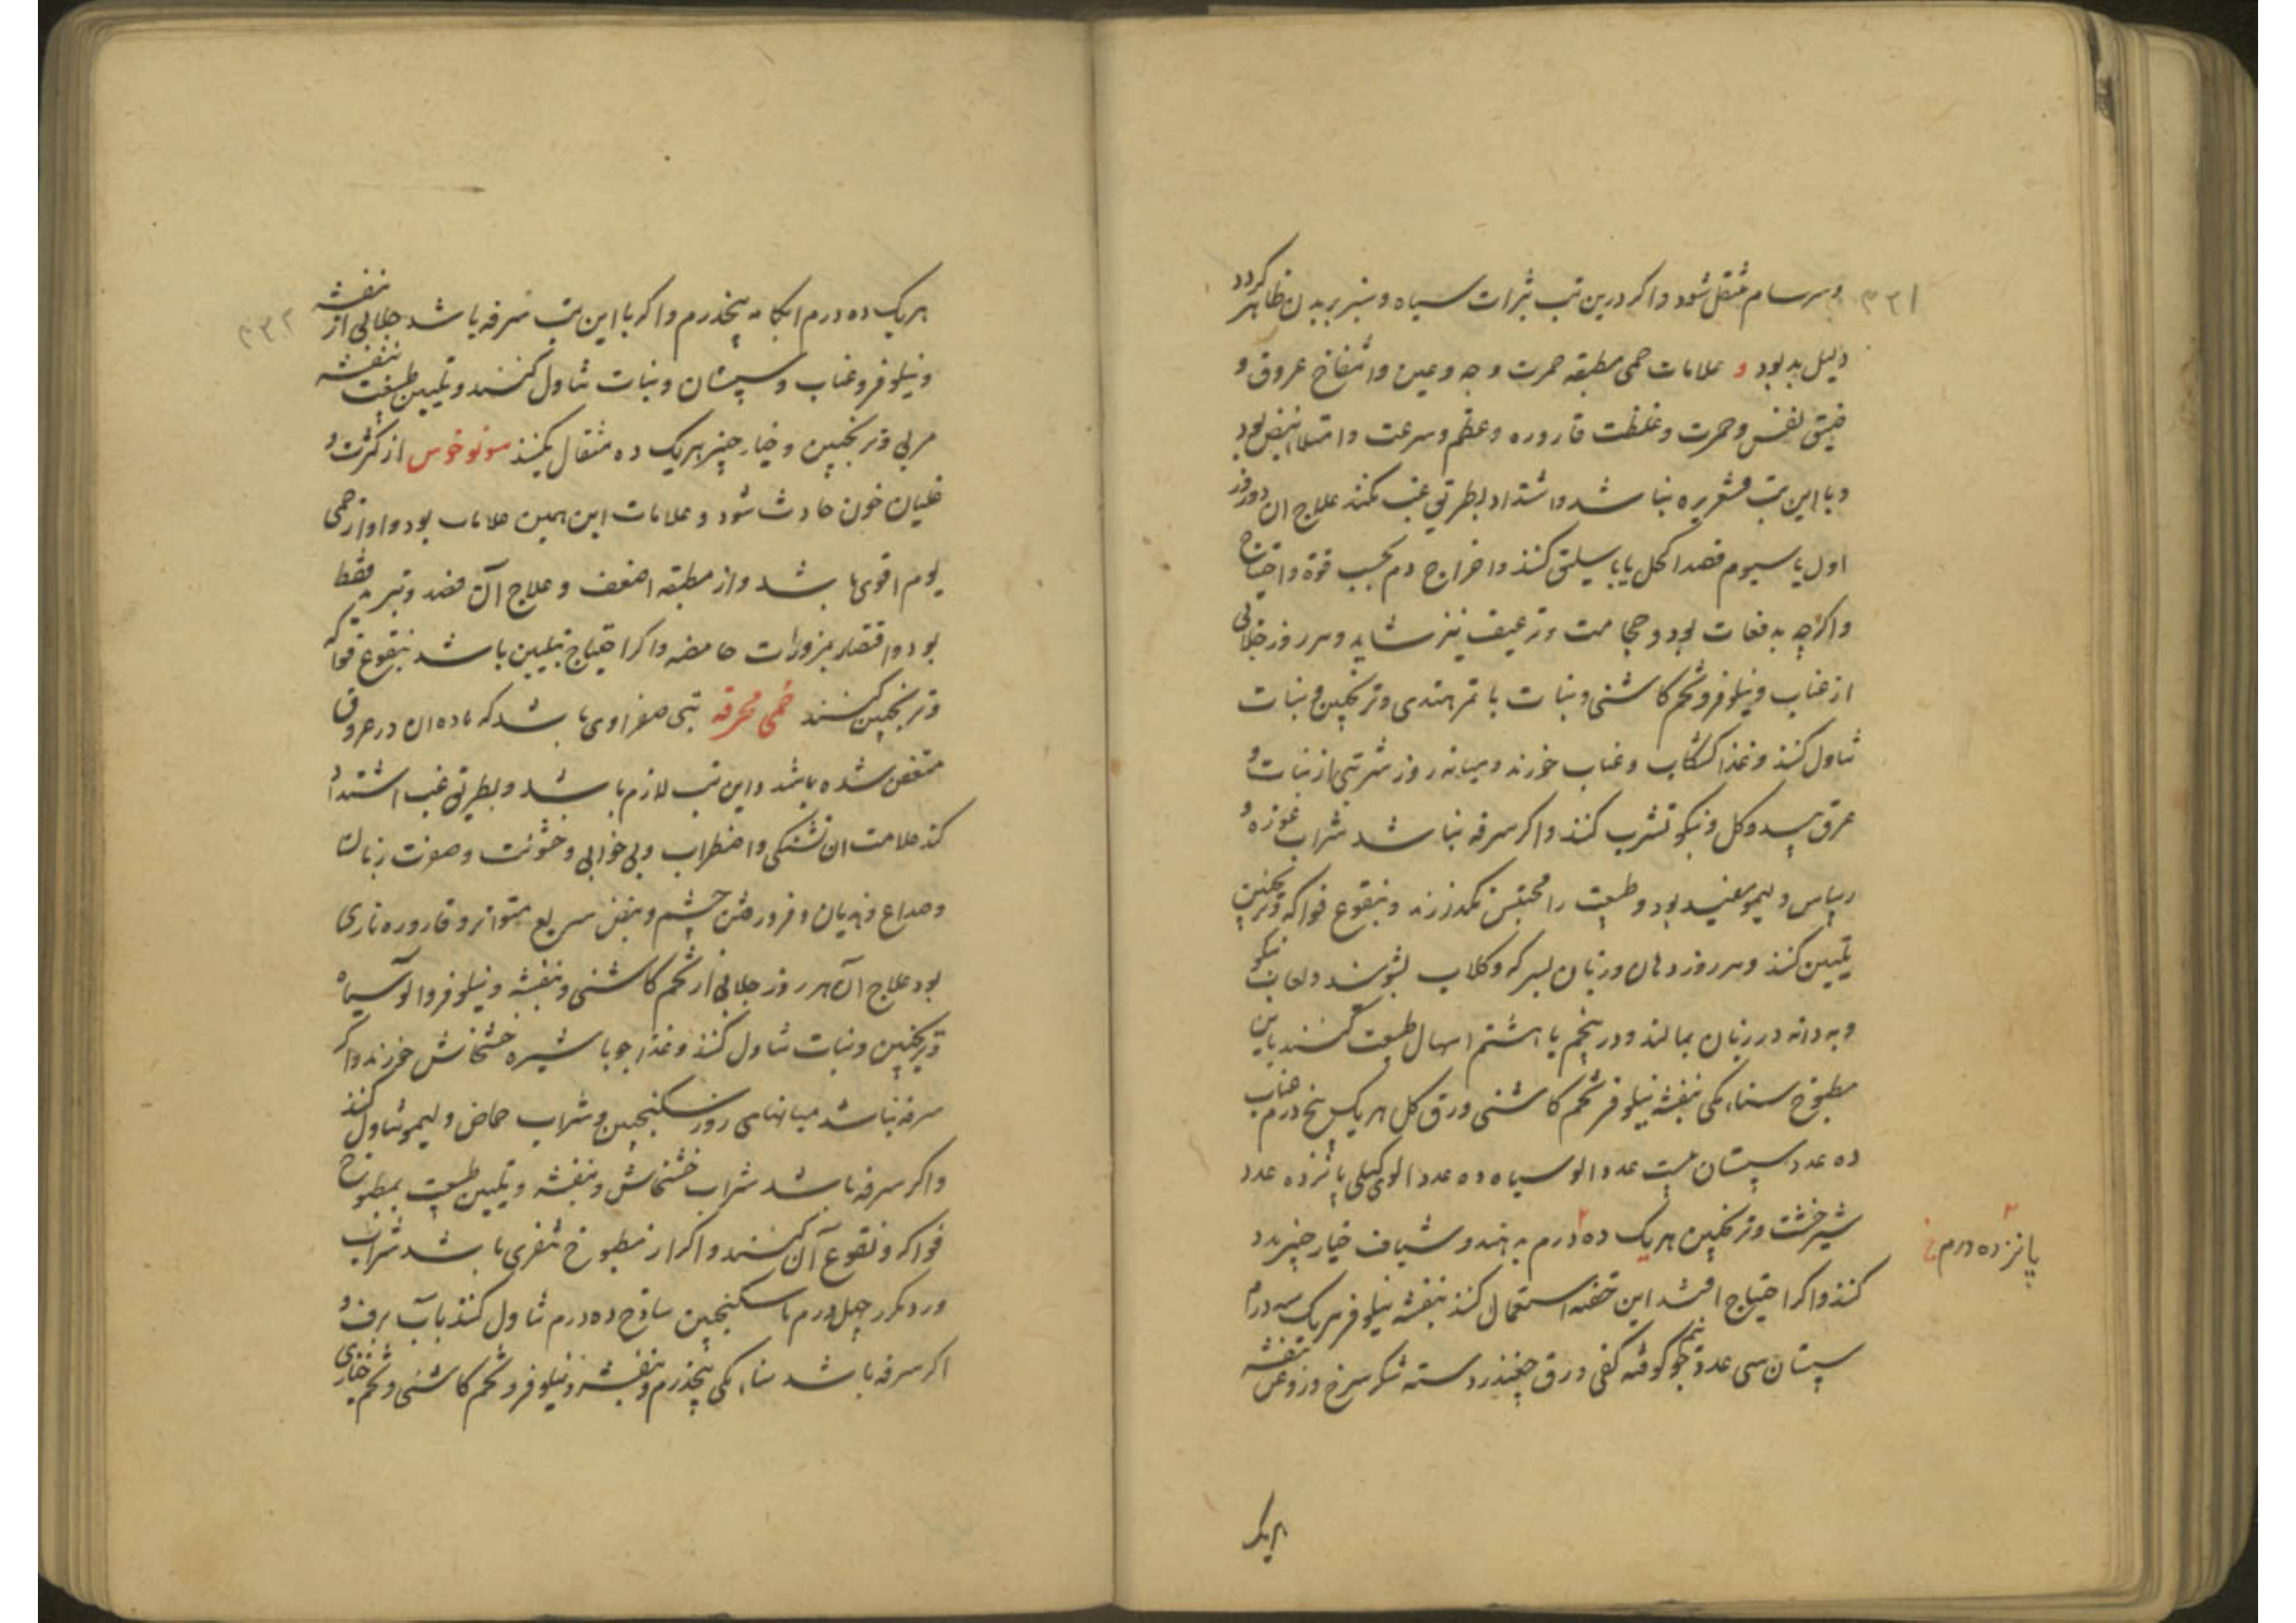 ۴۳۱
وسرسام منتقل شود واکر درین تب بثرات سیاه و سبز بر بدن ظاهر کردد
دلیل بد بود و علامات حمی مطبقه حمرت وجه و عین وانتفاخ عروق و
ضیق نفس وحمرت وغلظت قاروره وعظم وسرعت وامتلا نبض بود
وبا این تب قشعریره نباشد واشتداد بطریق غب نکند علاج ان دو روز
اول یا سیوم فصد اکحل یا باسلیق کنند واخراج دم بحسب قوة واحتیاج
واکرچه بدفعات بود وحجامت نیز شاید وهر روز جلابی
از عناب ونیلوفر وتخم کاشنی ونبات یا تمر هندی وترنجبین ونبات
تناول کنند وغذا کشکاب وعناب خورند ومیانه روز شربتی از نبات و
عرق بید وکل ونیکو تشرب کنند واکر سرفه نباشد شراب غوزه و
ریباس ولیمو مفید بود وطبیعت را محتبس نکذارند وبنقوع فواکه وترنجبین
تلیین کنند وهر روز دهان وزبان بسرکه وکلاب بشویند ولعاب نیکو
وبه دانه در زبان بمالند ودر پنجم یا هشتم اسهال طبیعت کنند باین
مطبوخ سناء مکی بنفشه نیلوفر تخم کاشنی ورق کل هریک پنج درم عناب
ده عدد سپستان بیست عدد الو سیاه ده عدد الوی کیلی پانزده عدد
شیرخشت وترنجبین هریک ده درم بدهند وشیاف خیارچنبر مدد
پانزده درم خ
کنند واکر احتیاج افتد این حقنه استعمال کنند بنفشه نیلوفر هریک سه درم
سپستان سی عدد جو نیم کوفته کفی ورق چغندر دسته شکر سرخ وروغن بنفشه
هریک
۴۳۲
هریک ده درم ابکامه پنجدرم واکر با این تب سرفه باشد جلابی از بنفشه
ونیلوفر وعناب وسپستان ونبات تناول کنند وتلیین طبیعت ببنفشه
مربی وترنجبین وخیار چنبر هریک ده مثقال بکنند سونوخوس از کثرت و
غلیان خون حادث شود وعلامات این همین علامات بود واو از حمی
یوم اقوی باشد واز مطبقه اضعف وعلاج آن فصد وتبرید فقط
بود واقتصار بمزورات حامضه واکر احتیاج بتلیین باشد بنقوع فواکه
وترنجبین کنند حمی محرقه تبی صفراوی باشد که ماده ان در عروق
متعفن شده باشد واین تب لازم باشد وبطریق غب اشتداد
کند علامت ان تشنکی واضطراب وبی خوابی وخشونت وصفرت زبان
وصداع وهذیان وفرو رفتن چشم ونبض سریع متواتر وقاروره ناری
بود علاج آن هر روز جلابی از تخم کاشنی وبنفشه ونیلوفر والو سیاه
وترنجبین ونبات تناول کنند وغذا جو با شیره خشخاش خورند واکر
سرفه نباشد میانهای روز سکنجبین وشراب حماض ولیمو تناول کنند
واکر سرفه باشد شراب خشخاش وبنفشه وتلیین طبیعت بمطبوخ
فواکه ونقوع آن کنند واکر از مطبوخ متنفر باشد شراب
ورد مکرر چهل درم با سکنجبین ساذج ده درم تناول کنند بآب برف و
اکر سرفه باشد سناء مکی پنجدرم وبنفشه ونیلوفر وتخم کاشنی وتخم خبازی